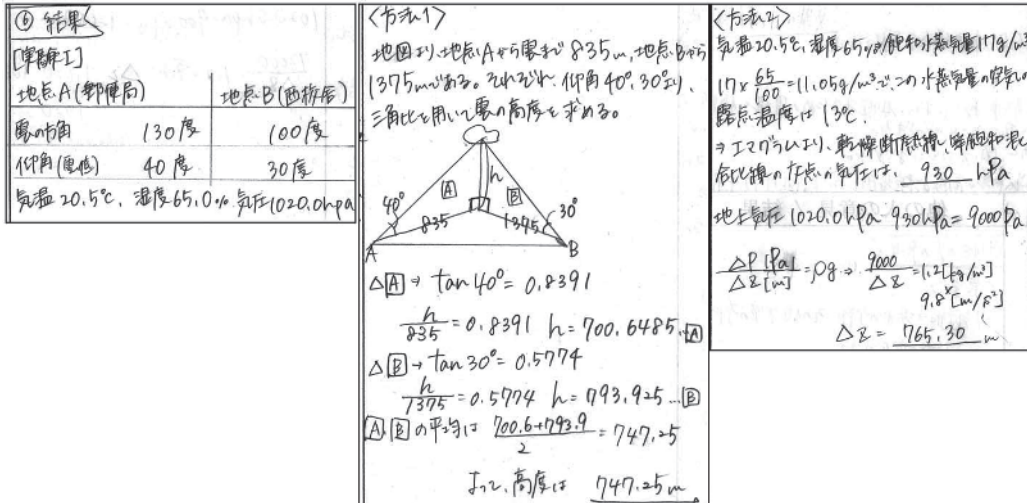 ⑥ 結果
[実験I]
地点A(郵便局) 地点B(西校舎)
雲の方角 130度 100度
仰角(雲低) 40度 30度
気温20.5℃, 湿度65.0% 気圧1020.0hpa
〈方法1〉
地図より、地点Aから雲まで835m, 地点Bから
1375mである。それぞれ、仰角40°, 30°より、
三角比を用いて雲の高度を求める。
h
A B
40° 30°
835 1375
A B
△A⇒ tan40°= 0.8391
h/835 = 0.8391 h= 700.6485…A
△B→ tan30°= 0.5774
h/1375 = 0.5774 h= 793.925…B
A,Bの平均は (700.6+793.9)/2 = 747.25
よって、高度は 747.25m
〈方法2〉
気温20.5℃, 湿度65% 飽和水蒸気量17g/m³
17×65/100=11.05g/m³で、この水蒸気量の空気の
露点温度は 13℃.
⇒エマグラムより、乾燥断熱線、等飽和混
合比線の交点の気圧は、 930 hPa
地上気圧1020.0hPa 930hPa= 9000Pa
ΔP[Pa]/ΔZ[m] =ρg⇒ 9000/ΔZ =1.2[kg/m³]
×
9.8[m/s²]
ΔZ= 765.30 m